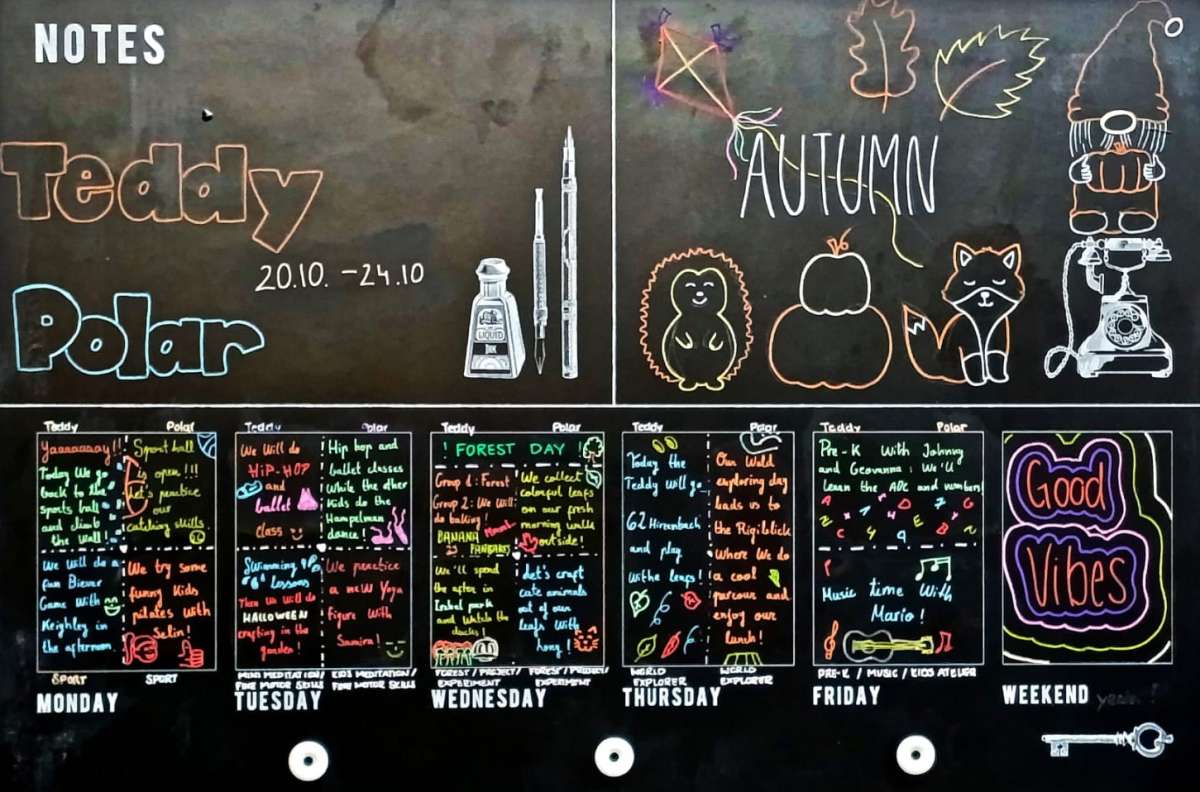 NOTES
Teddy
20.10. - 24.10
Polar
LIQUID
INK
AUTUMN
Teddy
Polar
Yaaaaaaay!!
Today We go
back to the
sports hall
and climb
the Wall!
We will do a
fun
Game With
Keighley in
the afternoon.
Sport hall
is open !!!
Let's practice
our
catching skills.
We try some
funny Kids
pilates with
Selin!
SPORT
SPORT
MONDAY
Teddy
Polar
We Will do
HIP-HOP
and
ballet
class
Swimming
lessons
Then We will do
HALLOWEEN
crafting in the
garden!
Hip hop and
ballet classes
While the other
Kids do the
Hampelman
dance!
We practice
a new Yoga
Figure With
Samira!
MINI MEDITATION/
FINE MOTOR SKILLS
KIDS MEDITATION/
FINE MOTOR SKILLS
TUESDAY
Teddy
Polar
! FOREST DAY !
Group 1: Forest
Group 2: We Will
do baking!
BANANA
PANCAKES
We'll spend
the after in
park
and Watch the
ducks!
We collect
colorful leafs
on our fresh
morning walk
outside!
Let's craft
cute animals
out of our
leafs With
FOREST / PROJECT/
EXPERIMENT
FOREST / PROJECT/
EXPERIMENT
WEDNESDAY
Teddy
Polar
Today the
Teddy Will go
62 Hirzenbach
and play
With leafs!
Our World
exploring day
leads us to
the Rigiblick
Where We do
a cool
parcour and
enjoy our
lunch!
WORLD
EXPLORER
WORLD
EXPLORER
THURSDAY
Teddy
Polar
Pre-K With Johnny
and Geovanna: We'll
learn the ABC and numbers!
Music time With
Mario!
PRE-K / MUSIC / KIDS ATELIER
FRIDAY
Good
Vibes
WEEKEND yeah!